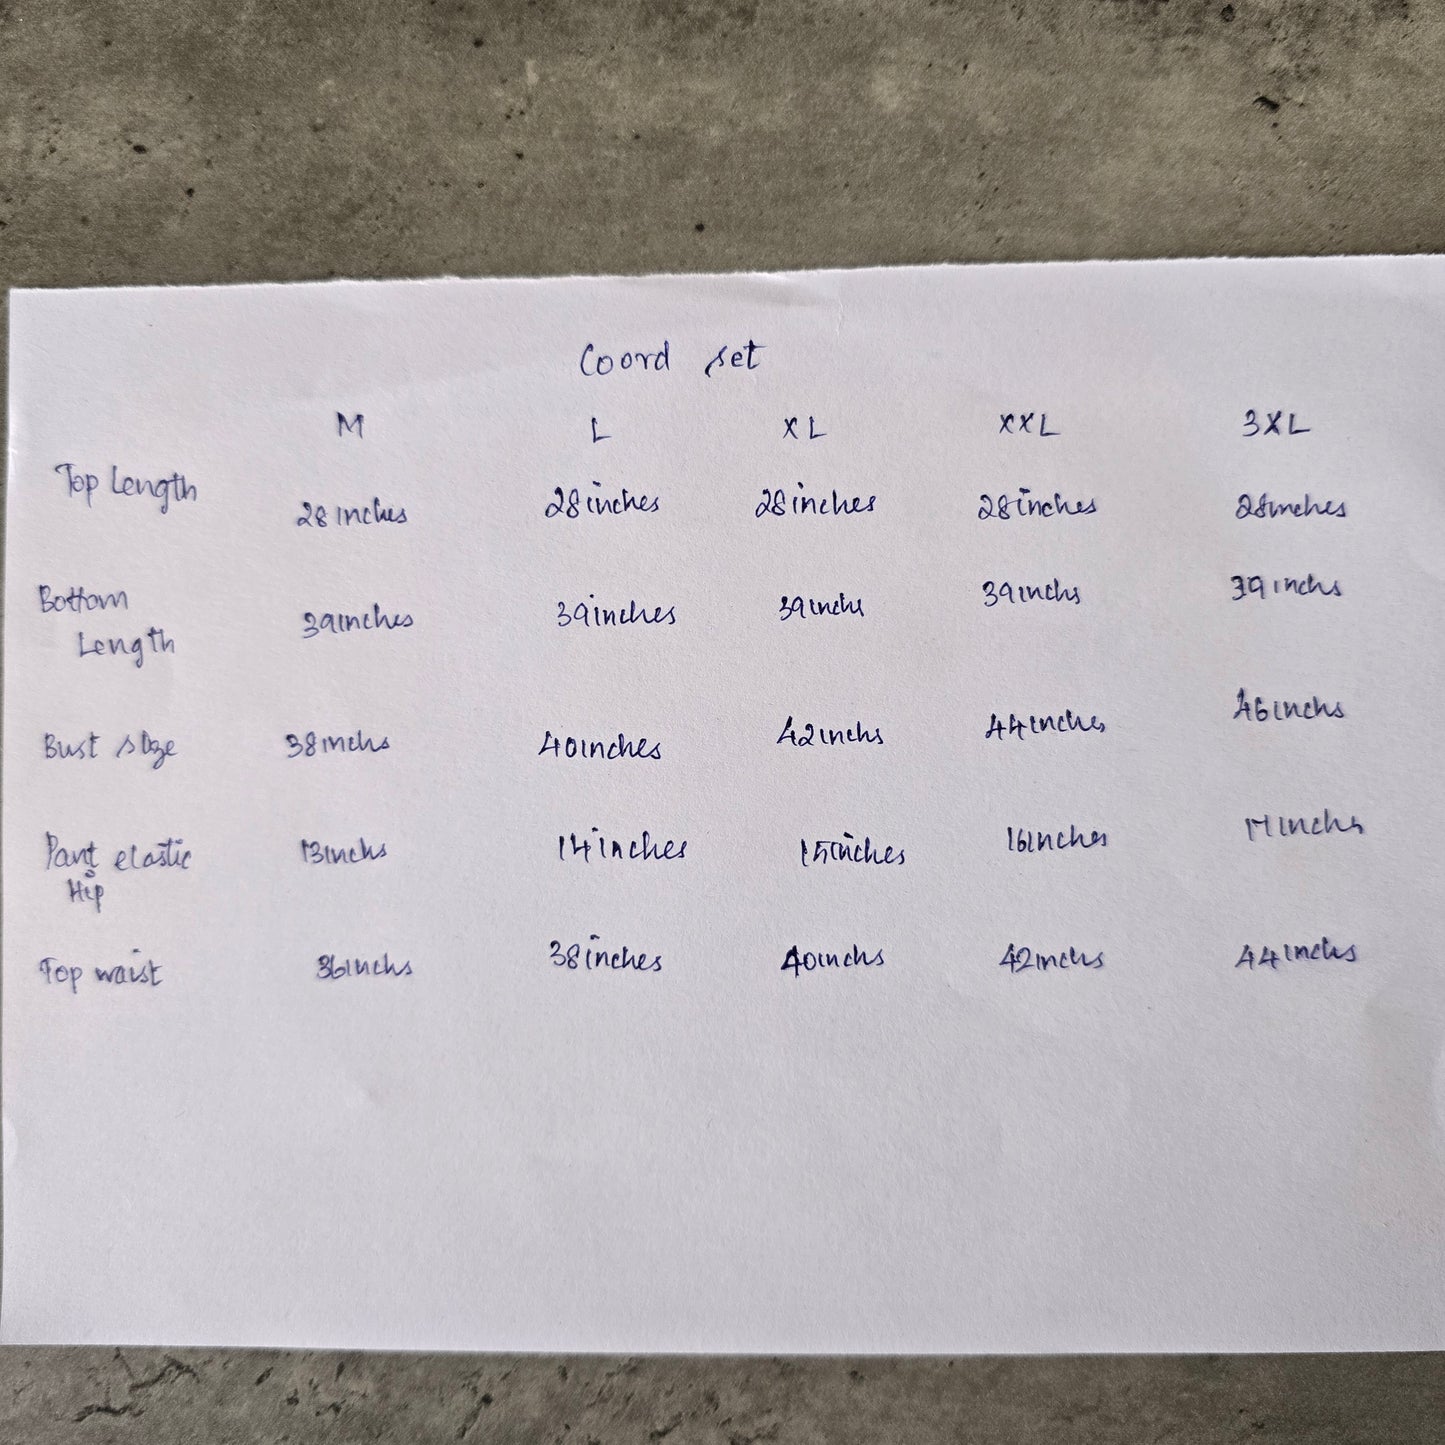 Coord set
M L XL XXL 3XL
Top Length 28inches 28inches 28inches 28inches 28inches
Bottom
Length 39inches 39inches 39inchs 39inchs 39inchs
Bust size 38inchs 40inches 42inchs 44inches 46inchs
Pant elastic 13inchs 14inches 15inches 16inches 17inchs
Hip
Top waist 36inchs 38inches 40inchs 42inchs 44inchs